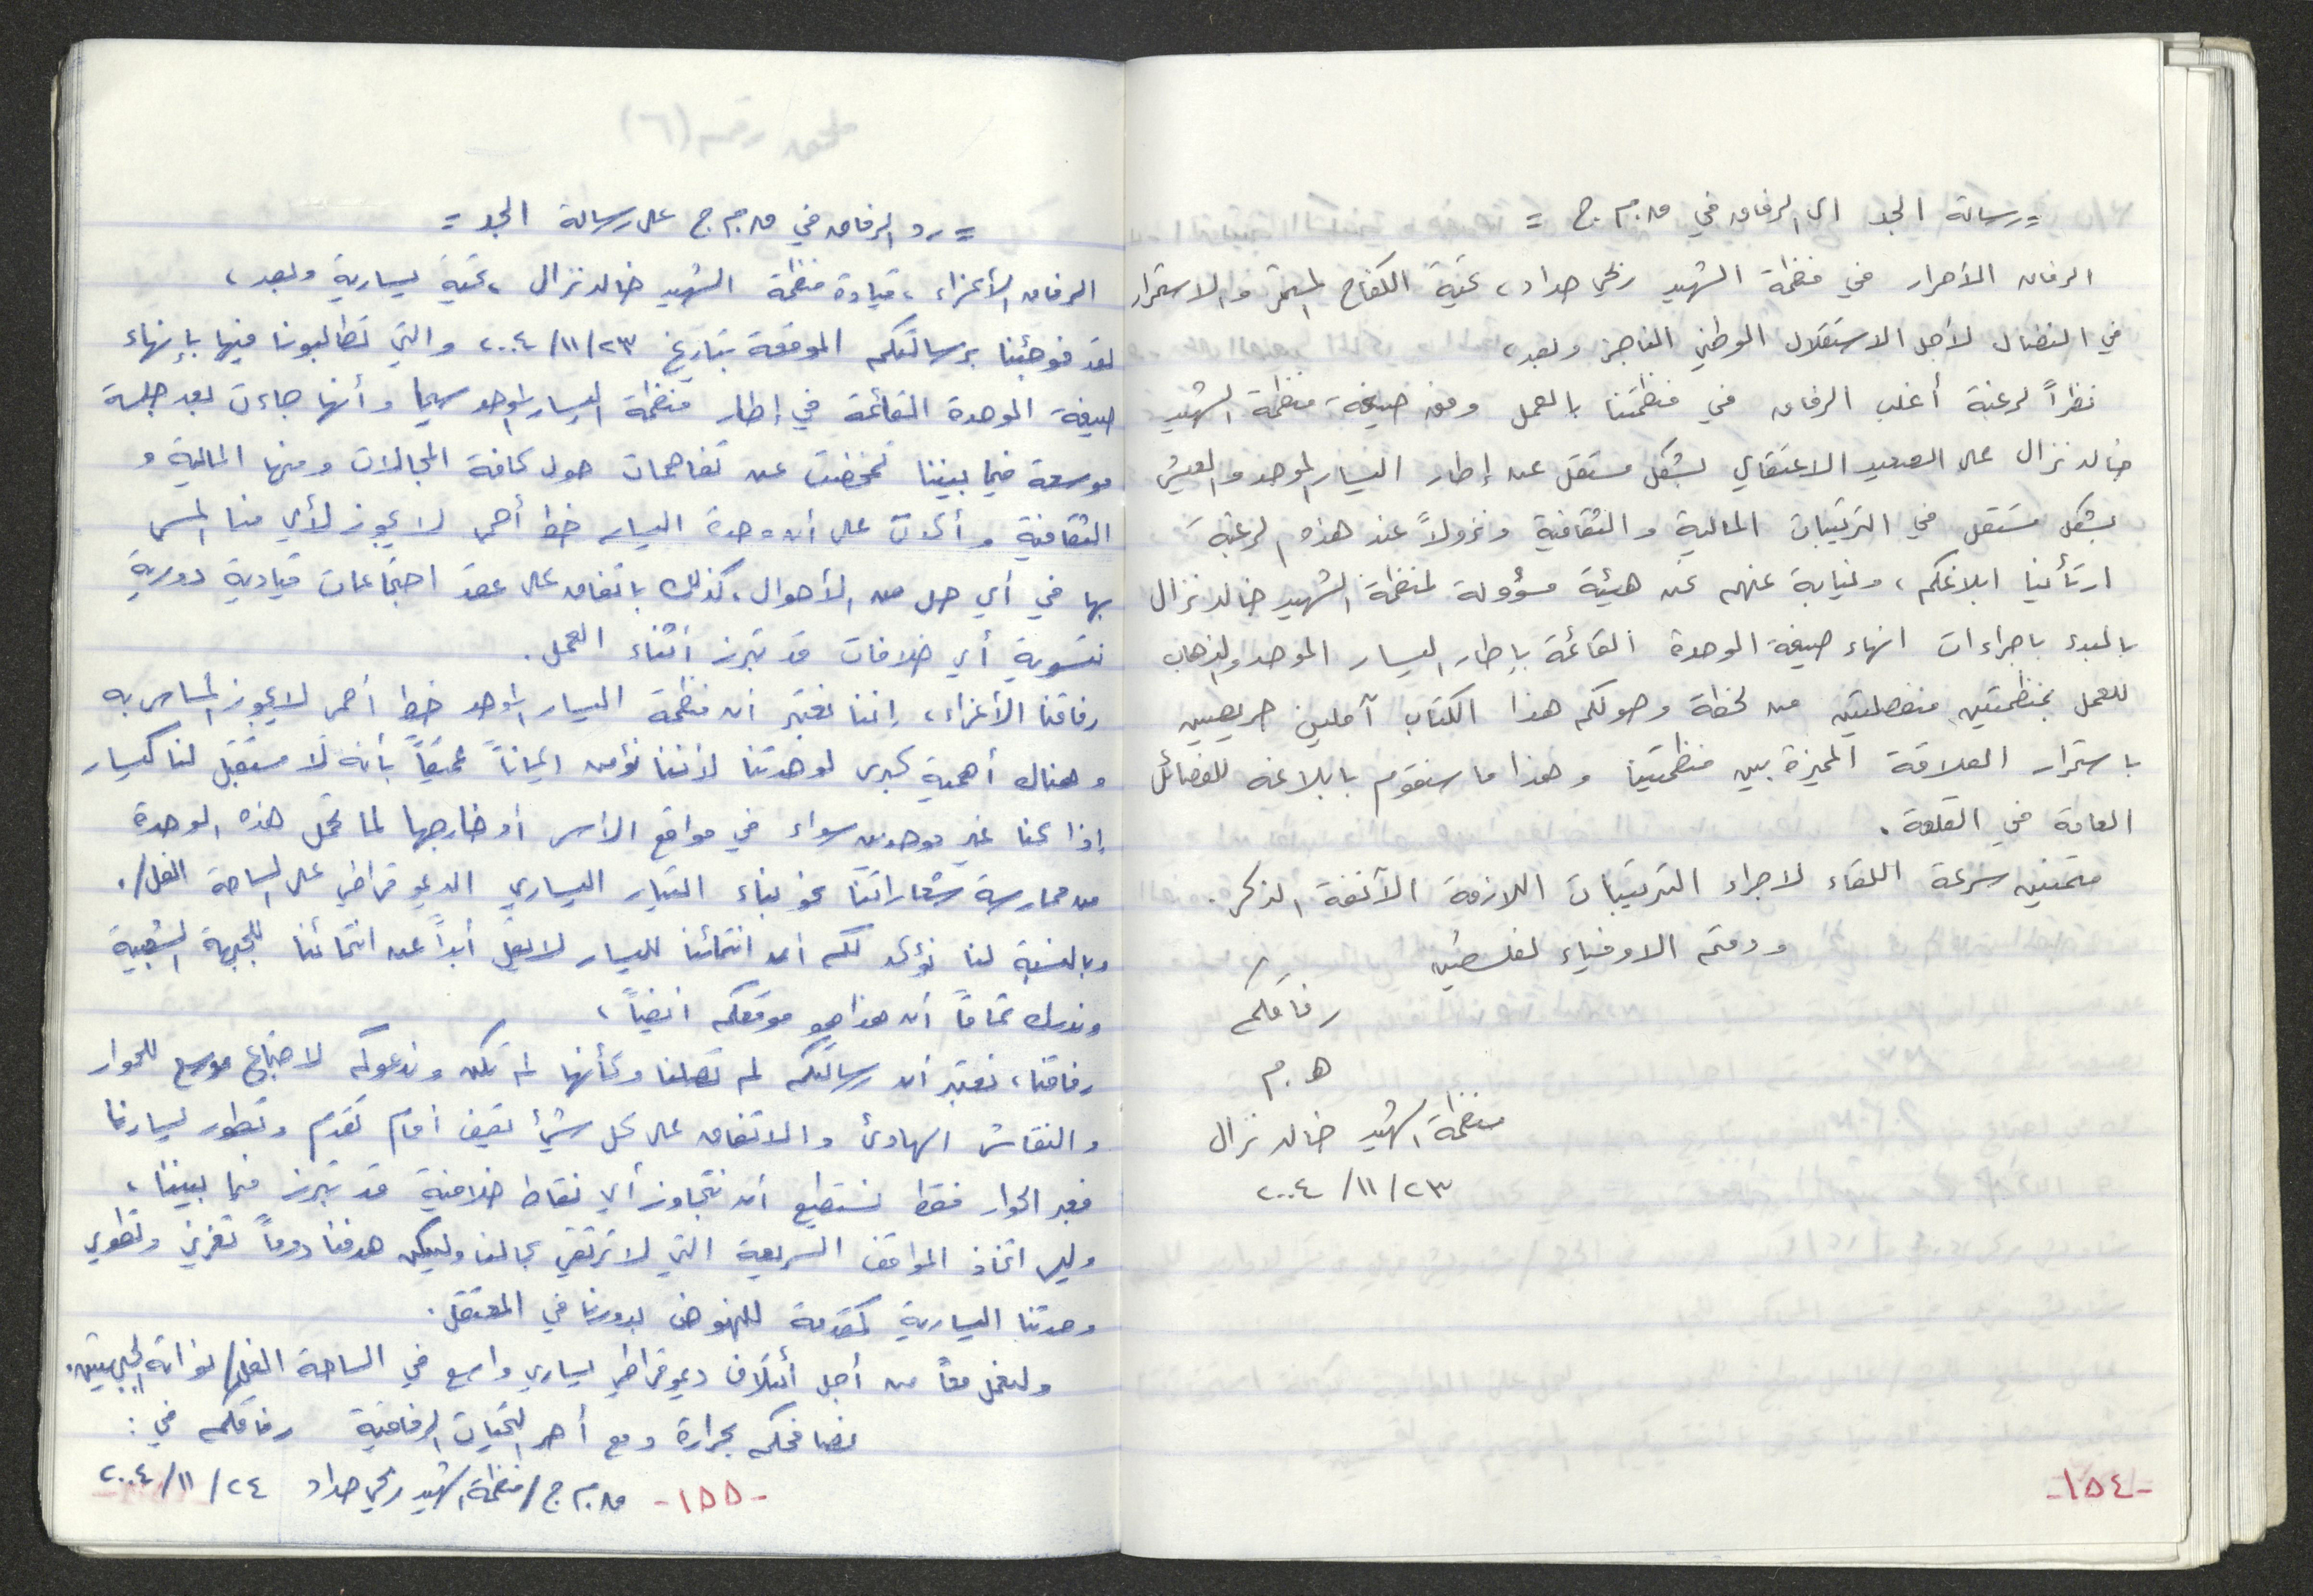 = رسالة الجد الى الرفاق في ق.م ج =
الرفاق الأحرار في منظمة الشهيد زكي حداد، تحية الكفاح المستمر والاستمرار
في النضال لأجل الاستقلال الوطني الناجز وبعد،
نظراً لرغبة أغلب الرفاق في منظمتنا بالعمل وفق صيغة منظمة الشهيد
خالد نزال على الصعيد الاعتقالي بشكل مستقل عن إطار اليسار الموحد والعيش
بشكل مستقل في الترتيبات المالية والثقافية ونزولاً عند هذه الرغبة
ارتأينا ابلاغكم، ونيابة عنهم نحن هيئة مسؤولة لمنظمة الشهيد خالد نزال
بالبدء باجراءات انهاء صيغة الوحدة القائمة بإطار اليسار الموحد والذهاب
للعمل بمنظمتين منفصلتين من لحظة وصولكم هذا الكتاب آملين حريصين
باستمرار العلاقة المميزة بين منظمتينا وهذا ما سنقوم بابلاغه للفصائل
العامة في القلعة.
متمنين سرعة اللقاء لاجراء الترتيبات اللازمة الآنفة الذكر.
ودمتم الاوفياء لفلسطين
رفاقكم
ه.م
منظمة الشهيد خالد نزال
٢٠٠٤/١١/٢٣
-١٥٤-
= رد الرفاق في ق.م ج على رسالة الجد =
الرفاق الأعزاء، قيادة منظمة الشهيد خالد نزال، تحية يسارية وبعد،
لقد فوجئنا برسالتكم الموقعة بتاريخ ٢٠٠٤/١١/٢٣ والتي تطالبونا فيها بإنهاء
صيغة الوحدة القائمة في إطار منظمة اليسار الموحد سيما وأنها جاءت بعد جلسة
موسعة فيما بيننا تمخضت عن تفاهمات حول كافة المجالات ومنها المالية و
الثقافية وأكدت على أن وحدة اليسار خط أحمر لا يجوز لأي منا المس
بها في أي حال من الأحوال، كذلك باتفاق على عقد اجتماعات قيادية دورية
لتسوية أي خلافات قد تبرز أثناء العمل.
رفاقنا الأعزاء، إننا نعتبر أن منظمة اليسار الموحد خط أحمر لا يجوز المساس به
وهناك أهمية كبرى لوحدتنا لأننا نؤمن ايماناً عميقاً بأنه لا مستقبل لنا كيسار
إذا كنا غير موحدين سواء في مواقع الأسر أو خارجها لما تحمل هذه الوحدة
من ممارسة شعاراتنا نحو بناء التيار اليساري الديموقراطي على الساحة الفل/.
وبالنسبة لنا نؤكد لكم أن انتمائنا لليسار لا يقل أبداً عن انتمائنا للجبهة الشعبية
وندرك تماماً أن هذا هو موقعكم أيضاً،
رفاقنا، نعتبر أن رسالتكم لم تصلنا وكأنها لم تكن وندعوكم لاجتماع موسع للحوار
والنقاش الهادئ والاتفاق على كل شيئ يقف أمام تقدم وتطور يسارنا
فعبر الحوار فقط نستطيع أن نتجاوز أي نقاط خلافية قد تبرز فيما بيننا،
وليس اتخاذ المواقف السريعة التي لا ترتقي بحالنا وليكن هدفنا دوماً تعزيز وتطوير
وحدتنا اليسارية كمقدمة للنهوض بدورنا في المعتقل.
ولنعمل معاً من أجل أئتلاف ديموقراطي يساري واسع في الساحة الفل/ نواته الجبهتين.
نصافحكم بحرارة ومع أحر التحيات الرفاقية رفاقكم في:
ق.م ج/ منظمة الشهيد زكي حداد ٢٠٠٤/١١/٢٤
-١٥٥-